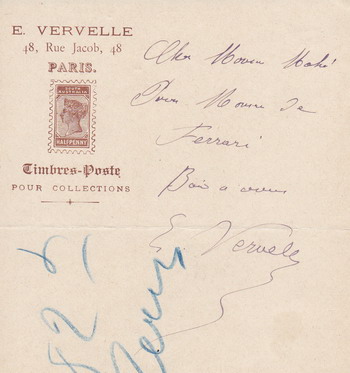 E. VERVELLE
48, Rue Jacob, 48
PARIS.
SOUTH AUSTRALIA
HALFPENNY
Timbres-Poste
POUR COLLECTIONS
Cher Monsieur Mahé
Monsieur de
Ferrari
Bien a vous
E. Vervelle